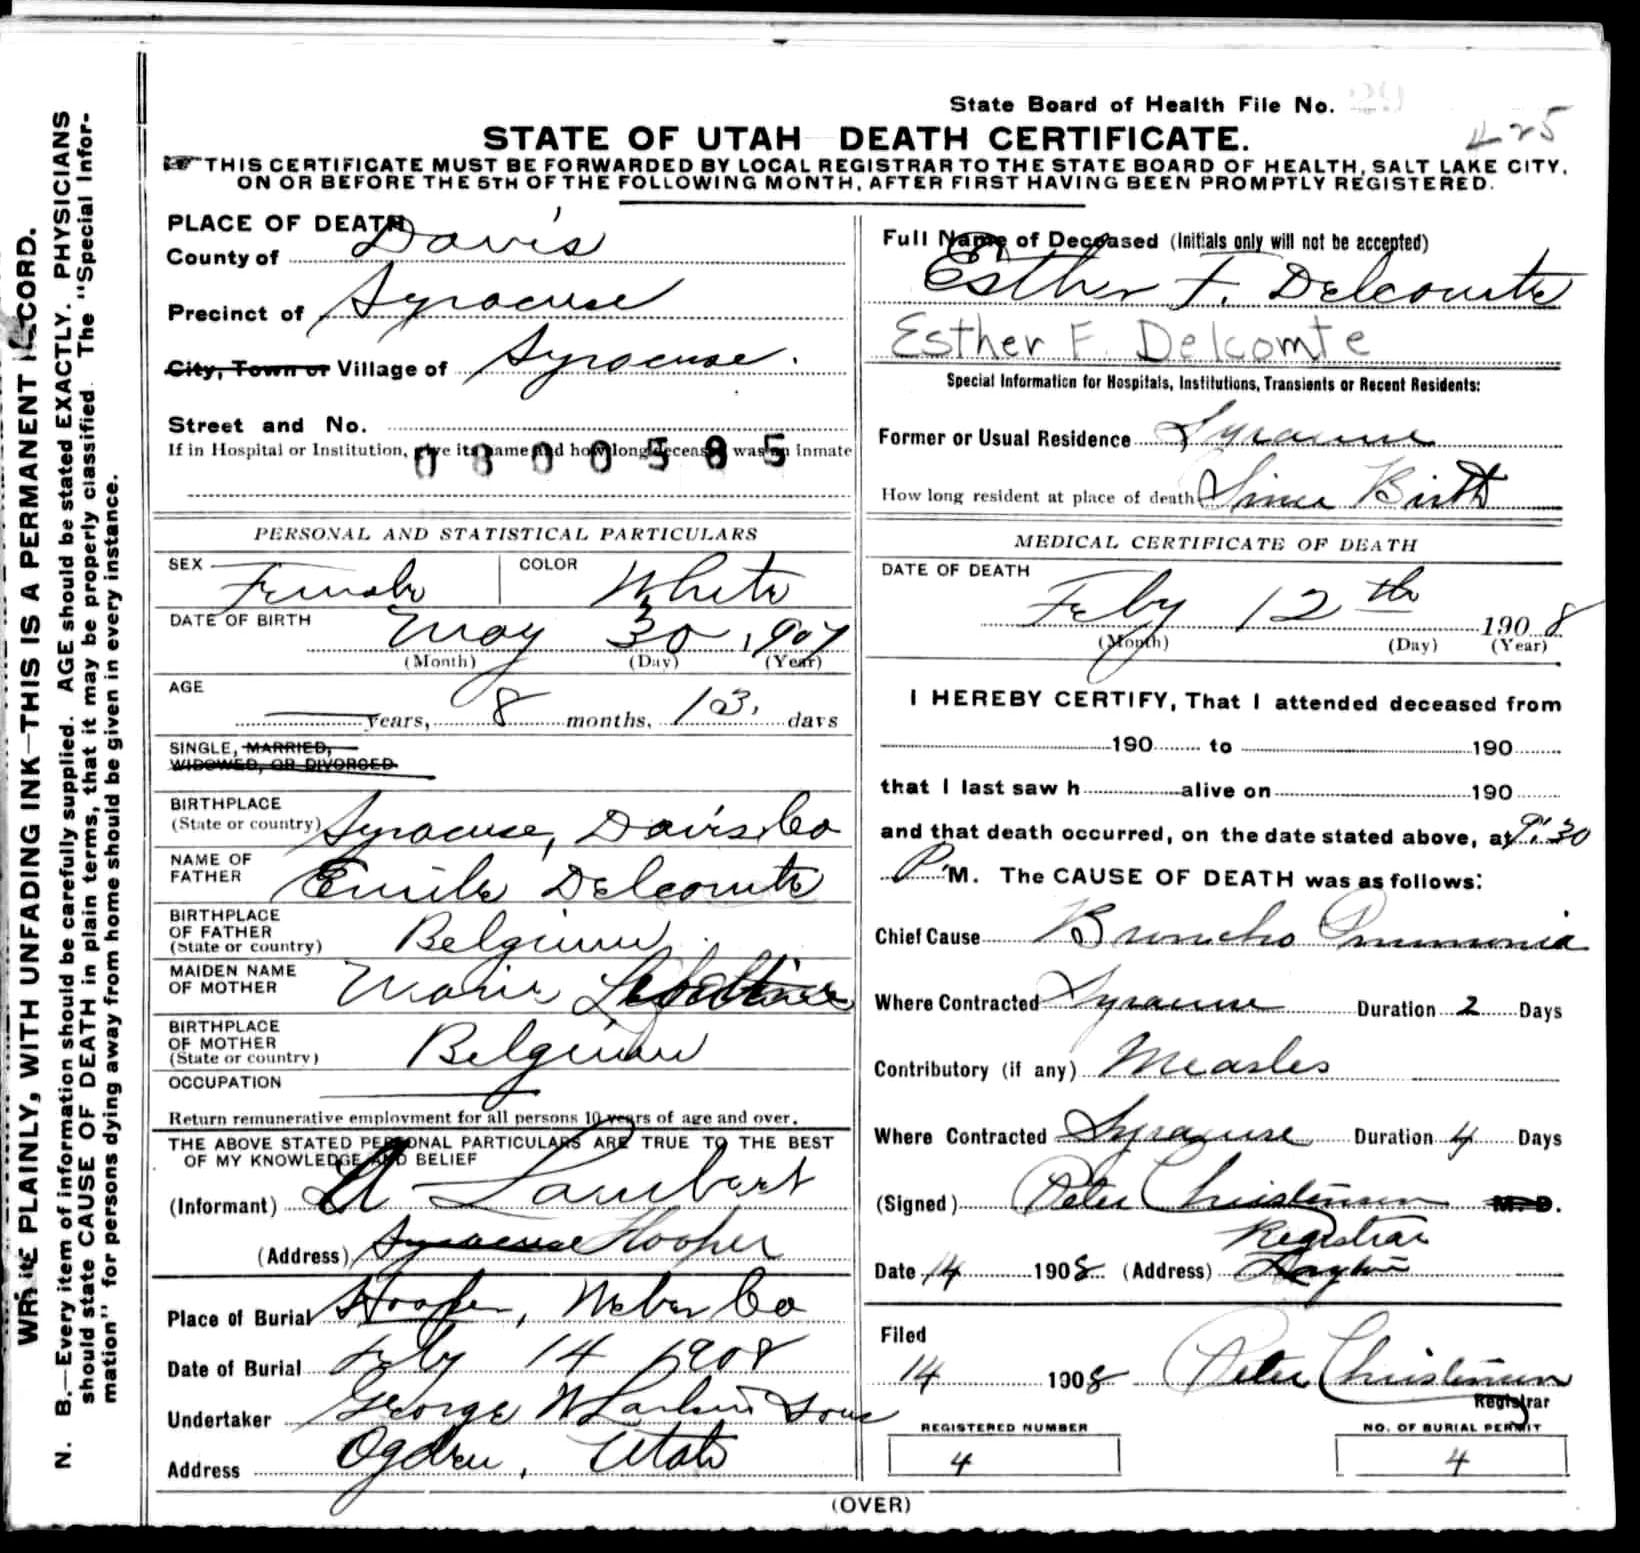 WRITE PLAINLY, WITH UNFADING INK—THIS IS A PERMANENT RECORD.
N. B.—Every item of information should be carefully supplied. AGE should be stated EXACTLY. PHYSICIANS
should state CAUSE OF DEATH in plain terms, that it may be properly classified. The "Special Infor-
mation" for persons dying away from home should be given in every instance.
State Board of Health File No. 29
425
STATE OF UTAH DEATH CERTIFICATE.
THIS CERTIFICATE MUST BE FORWARDED BY LOCAL REGISTRAR TO THE STATE BOARD OF HEALTH, SALT LAKE CITY,
ON OR BEFORE THE 5TH OF THE FOLLOWING MONTH, AFTER FIRST HAVING BEEN PROMPTLY REGISTERED.
PLACE OF DEATH
County of Davis
Precinct of Syracuse
City, Town or Village of Syracuse.
Street and No.
If in Hospital or Institution, give its name and how long deceased was an inmate
PERSONAL AND STATISTICAL PARTICULARS
SEX Female COLOR White
DATE OF BIRTH May 30, 1907
(Month) (Day) (Year)
AGE
— years, 8 months, 13, days
SINGLE, MARRIED,
WIDOWED, OR DIVORCED
BIRTHPLACE
(State or country) Syracuse, Davis Co
NAME OF
FATHER Emile Delcomte
BIRTHPLACE
OF FATHER
(State or country) Belgium
MAIDEN NAME
OF MOTHER Marie
BIRTHPLACE
OF MOTHER
(State or country) Belgium
OCCUPATION
Return remunerative employment for all persons 10 years of age and over.
THE ABOVE STATED PERSONAL PARTICULARS ARE TRUE TO THE BEST
OF MY KNOWLEDGE AND BELIEF
(Informant) Lambert
(Address) Syracuse Hooper
Place of Burial Hooper, Weber Co
Date of Burial Feby 14 1908
Undertaker George W Larkin & Sons
Address Ogden, Utah
Full Name of Deceased (Initials only will not be accepted)
Esther F. Delcomte
Esther F. Delcomte
Special Information for Hospitals, Institutions, Transients or Recent Residents:
Former or Usual Residence Syracuse
How long resident at place of death Since Birth
MEDICAL CERTIFICATE OF DEATH
DATE OF DEATH
Feby 12th 1908
(Month) (Day) (Year)
I HEREBY CERTIFY, That I attended deceased from
190 to 190
that I last saw h alive on 190
and that death occurred, on the date stated above, at 9:30
P M. The CAUSE OF DEATH was as follows:
Chief Cause Broncho Pneumonia
Where Contracted Syracuse Duration 2 Days
Contributory (if any) Measles
Where Contracted Syracuse Duration 4 Days
(Signed) Peter Christensen M. D.
Registrar
Date 14 1908 (Address) Layton
Filed
14 1908 Peter Christensen
Registrar
REGISTERED NUMBER
4
NO. OF BURIAL PERMIT
4
(OVER)